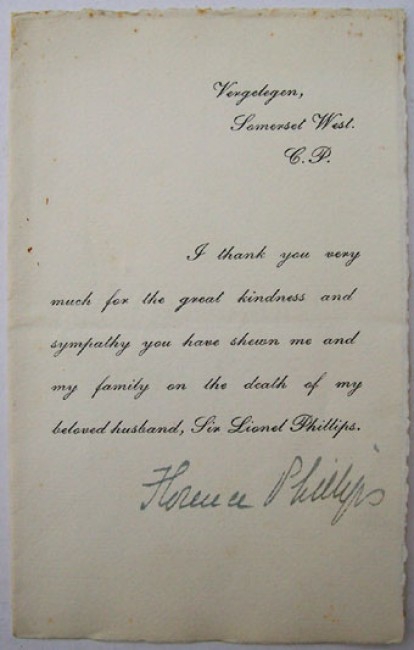 Vergelegen,
Somerset West.
C.P.
I thank you very
much for the great kindness and
sympathy you have shewn me and
my family on the death of my
beloved husband, Sir Lionel Phillips.
Florence Phillips